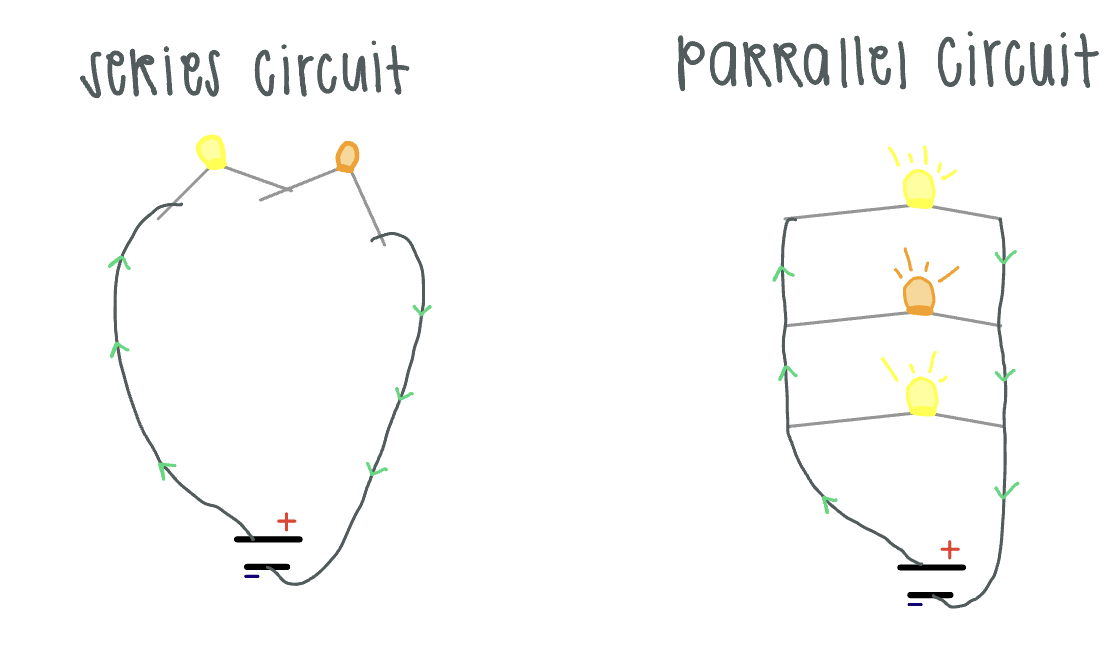 series circuit
parrallel circuit
+
-
+
-